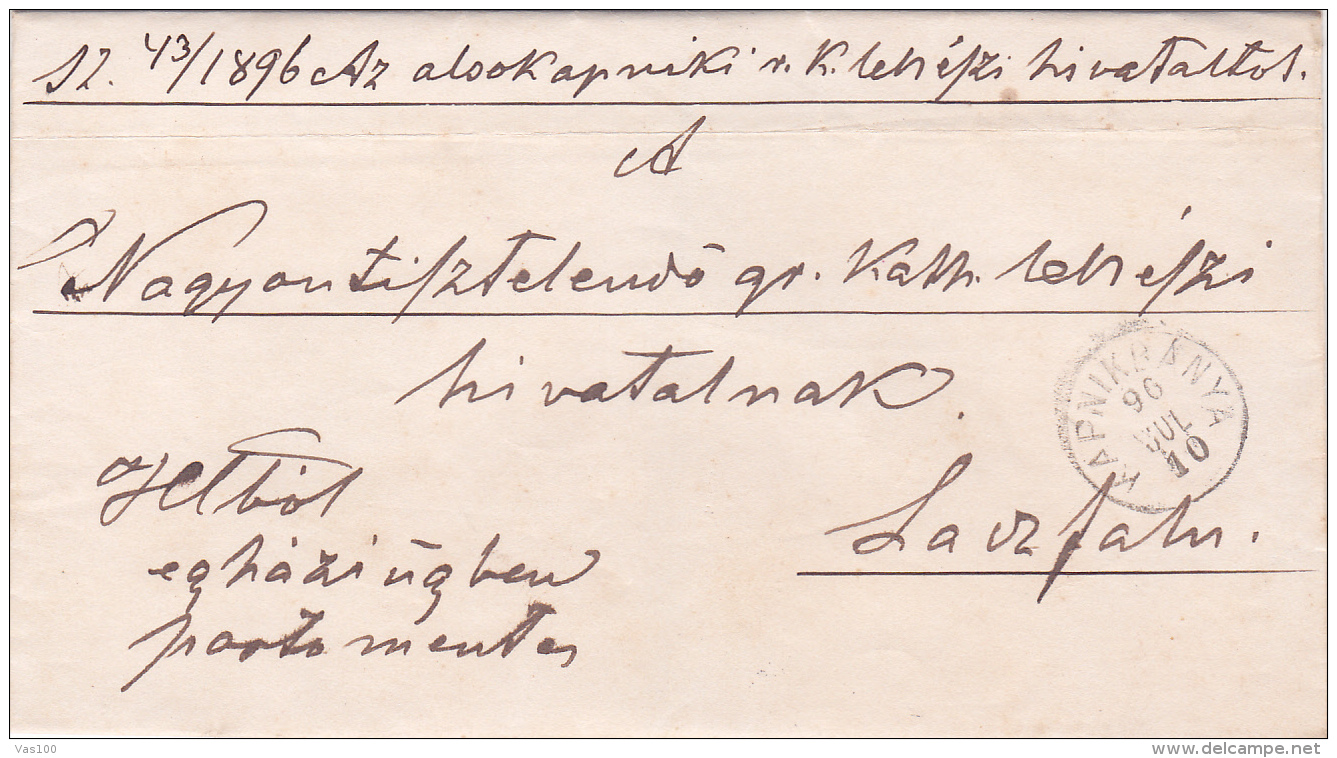 Sz. 43/1896 Az alsókapniki r. k. lelkészi hivataltol.
A
Nagyontisztelendő gr. Kath. lelkészi
hivatalnak.
KAPNIKBÁNYA
96
JUL
10
Hivatalból
egházi ügben
portomentes
Vas100
www.delcampe.net